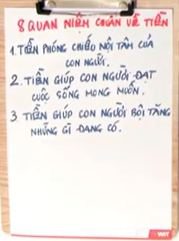 8 QUAN NIỆM CHUẨN VỀ TIỀN
1. TIỀN PHÓNG CHIẾU NỘI TÂM CỦA
CON NGƯỜI.
2. TIỀN GIÚP CON NGƯỜI ĐẠT
CUỘC SỐNG MONG MUỐN.
3 TIỀN GIÚP CON NGƯỜI BỒI TĂNG
NHỮNG GÌ ĐANG CÓ.